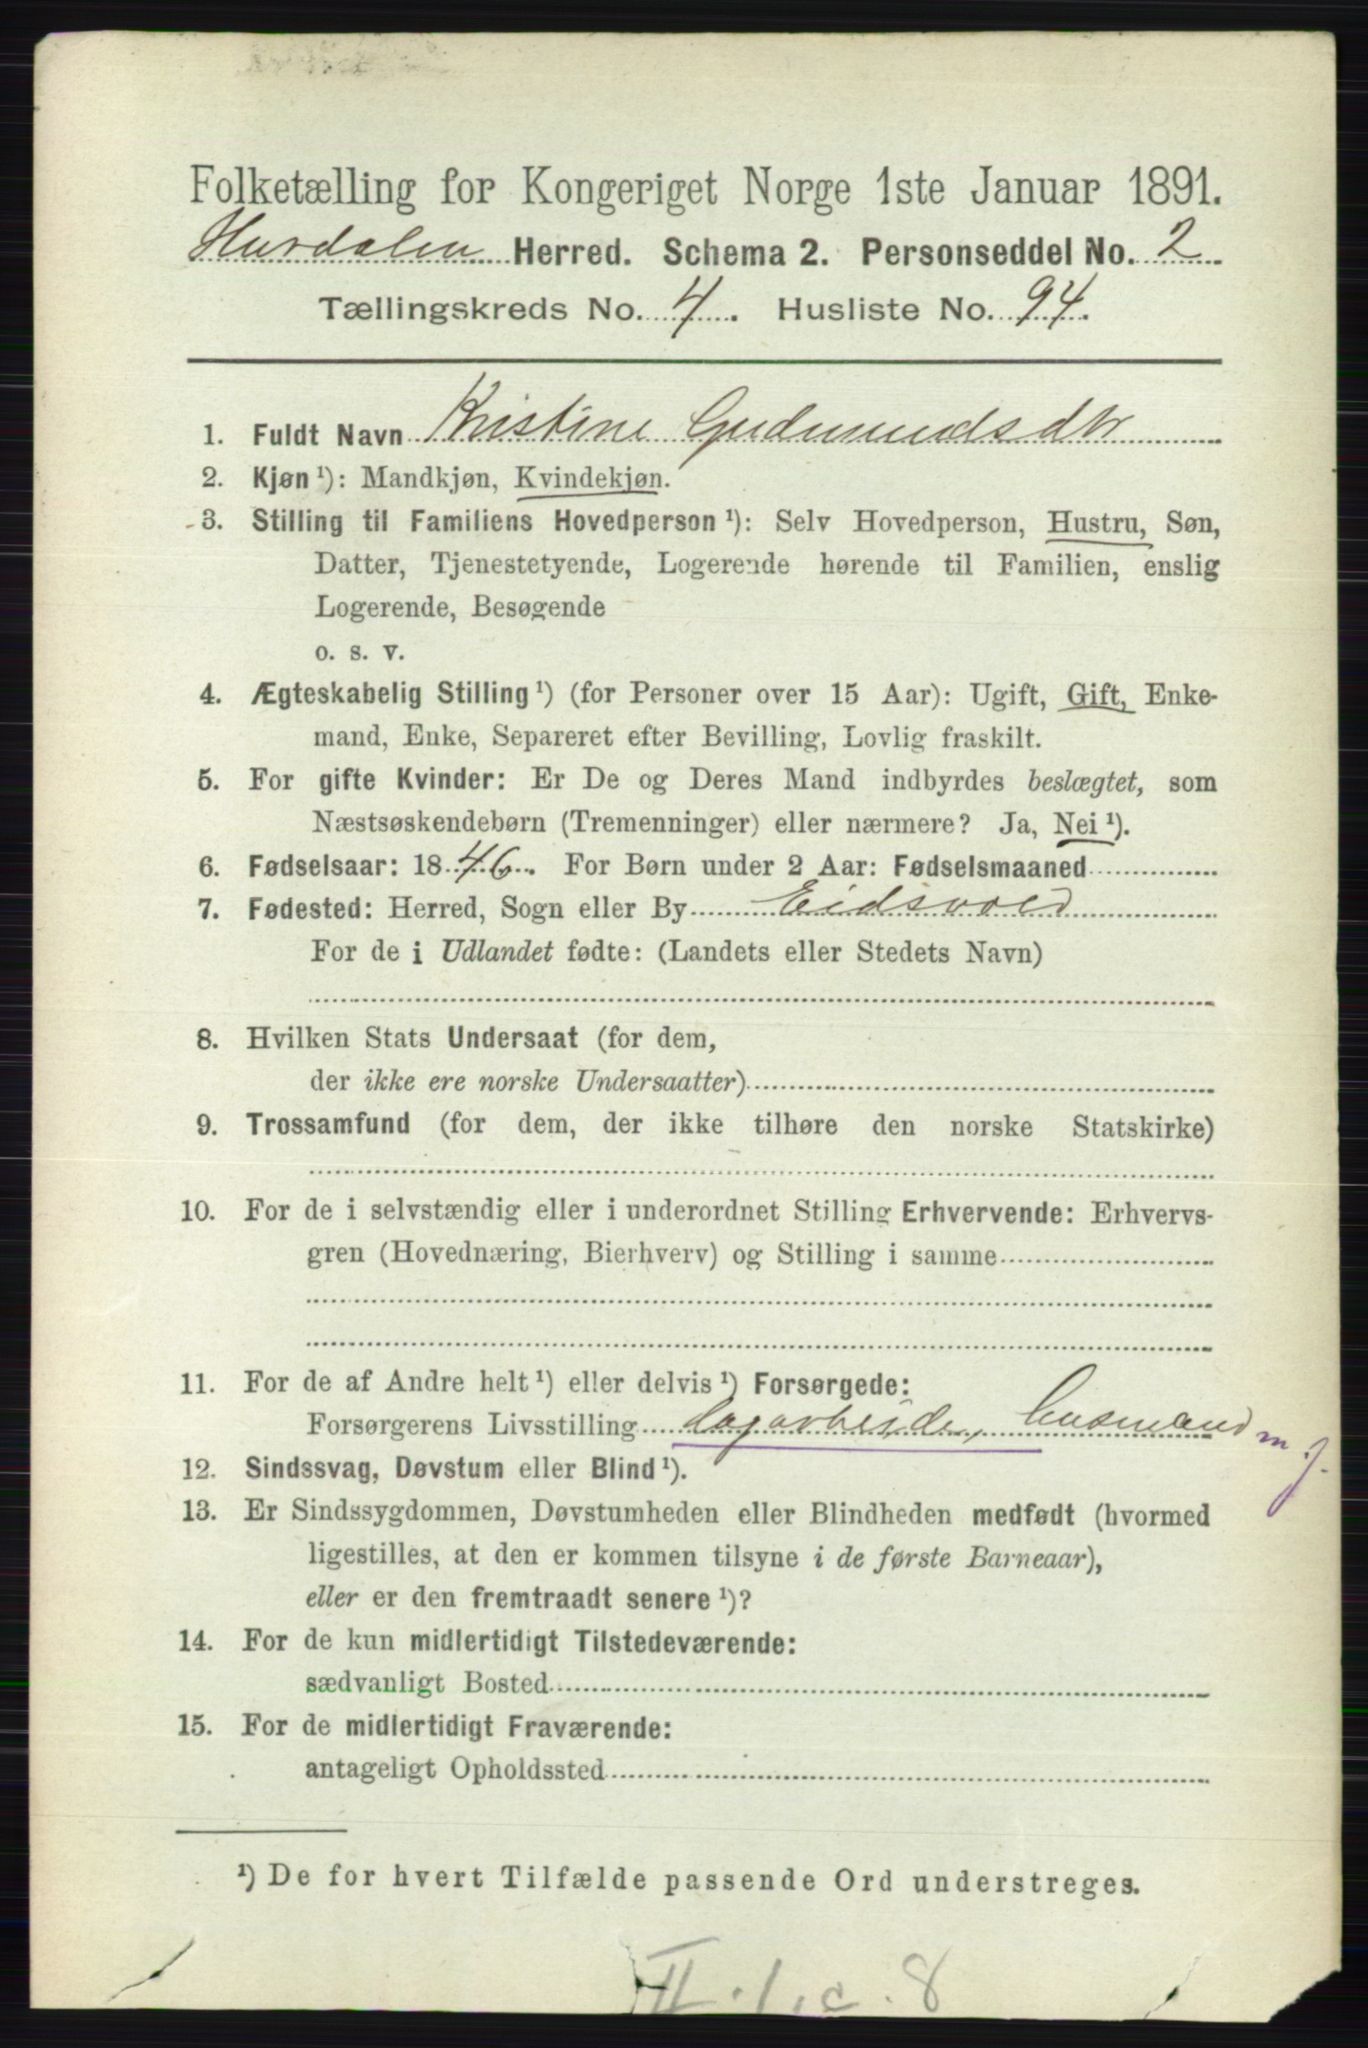 Folketælling for Kongeriget Norge 1ste Januar 1891.
Hurdalen Herred. Schema 2. Personseddel No. 2
Tællingskreds No. 4. Husliste No. 94.
1. Fuldt Navn Kristine Gudmundsdtr
2. Kjøn ¹): Mandkjøn, Kvindekjøn.
3. Stilling til Familiens Hovedperson ¹): Selv Hovedperson, Hustru, Søn,
Datter, Tjenestetyende, Logerende hørende til Familien, enslig
Logerende, Besøgende
o. s. v.
4. Ægteskabelig Stilling ¹) (for Personer over 15 Aar): Ugift, Gift, Enke-
mand, Enke, Separeret efter Bevilling, Lovlig fraskilt.
5. For gifte Kvinder: Er De og Deres Mand indbyrdes beslægtet, som
Næstsøskendebørn (Tremenninger) eller nærmere? Ja, Nei ¹).
6. Fødselsaar: 1846. For Børn under 2 Aar: Fødselsmaaned
7. Fødested: Herred, Sogn eller By Eidsvold
For de i Udlandet fødte: (Landets eller Stedets Navn)
8. Hvilken Stats Undersaat (for dem,
der ikke ere norske Undersaatter)
9. Trossamfund (for dem, der ikke tilhøre den norske Statskirke)
10. For de i selvstændig eller i underordnet Stilling Erhvervende: Erhvervs-
gren (Hovednæring, Bierhverv) og Stilling i samme
11. For de af Andre helt ¹) eller delvis ¹) Forsørgede:
Forsørgerens Livsstilling husmand m. J.
12. Sindssvag, Døvstum eller Blind ¹).
13. Er Sindssygdommen, Døvstumheden eller Blindheden medfødt (hvormed
ligestilles, at den er kommen tilsyne i de første Barneaar),
eller er den fremtraadt senere ¹)?
14. For de kun midlertidigt Tilstedeværende:
sædvanligt Bosted
15. For de midlertidigt Fraværende:
antageligt Opholdssted
¹) De for hvert Tilfælde passende Ord understreges.
II. 1. c. 8